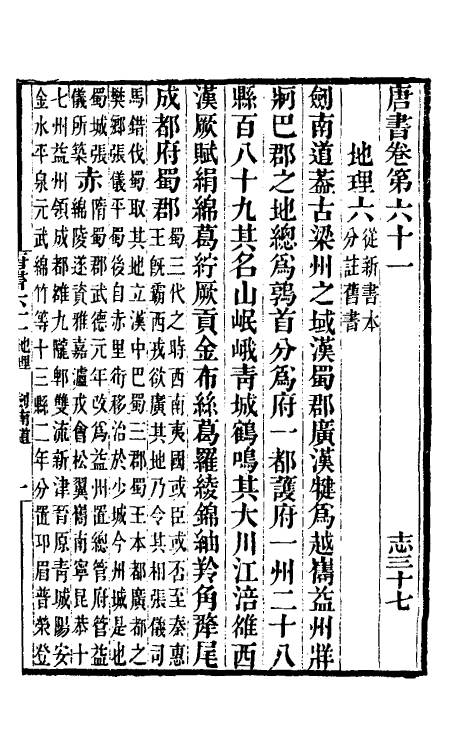 唐書卷第六十一 志三十七
地理六
從新書本
分註舊書
劍南道葢古梁州之域漢蜀郡廣漢犍爲越巂益州牂
牁巴郡之地總爲鶉首分爲府一都護府一州二十八
縣百八十九其名山岷峨靑城鶴鳴其大川江涪雒西
漢厥賦絹綿葛紵厥貢金布絲葛羅綾錦紬羚角犛尾
成都府蜀郡
蜀三代之時西南夷國或臣或否至秦惠
王旣霸西戎欲廣其地乃令其相張儀司
馬錯伐蜀取其地立漢中巴蜀三郡蜀王本都廣都之
樊鄉張儀平蜀後自赤里街移治於少城今州城是也
蜀城張
儀所築
赤
隋蜀郡武德元年改爲益州置總管府管益
綿陵遂資雅嘉瀘戎會松翼巂南寧昆恭十
七州益州領成都雒九隴郫雙流新津晉原靑城陽安
金水平泉元武綿竹等十三縣二年分置邛眉普榮登
唐書六十一 地理 劍南道 一